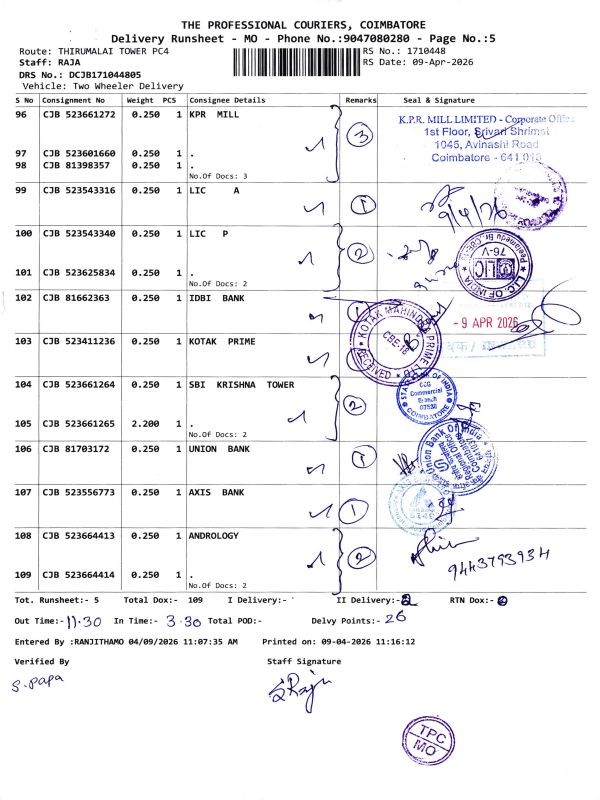 THE PROFESSIONAL COURIERS, COIMBATORE
Delivery Runsheet - MO - Phone No.:9047080280 - Page No.:5
Route: THIRUMALAI TOWER PC4 RS No.: 1710448
Staff: RAJA RS Date: 09-Apr-2026
DRS No.: DCJB171044805
Vehicle: Two Wheeler Delivery
S No Consignment No Weight PCS Consignee Details Remarks Seal & Signature
96 CJB 523661272 0.250 1 KPR MILL
3
K.P.R. MILL LIMITED - Corporate Office
1st Floor, Srivari Shrimat
1045, Avinashi Road
Coimbatore - 641 018
97 CJB 523601660 0.250 1 .
98 CJB 81398357 0.250 1 .
No.Of Docs: 3
99 CJB 523543316 0.250 1 LIC A
1
9/4/26
100 CJB 523543340 0.250 1 LIC P
2
L.I.C. OF INDIA
LIC
76-V
Peelamedu Br. CBE
101 CJB 523625834 0.250 1 .
No.Of Docs: 2
102 CJB 81662363 0.250 1 IDBI BANK
1
- 9 APR 2026
103 CJB 523411236 0.250 1 KOTAK PRIME
1
KOTAK MAHINDRA PRIME LTD
CBE-18
RECEIVED
104 CJB 523661264 0.250 1 SBI KRISHNA TOWER
2
STATE BANK OF INDIA
Commercial
Branch
07536
COIMBATORE
105 CJB 523661265 2.200 1 .
No.Of Docs: 2
106 CJB 81703172 0.250 1 UNION BANK
1
Union Bank Of India
Regional Office
Coimbatore
641037
107 CJB 523556773 0.250 1 AXIS BANK
1
108 CJB 523664413 0.250 1 ANDROLOGY
2
9443793934
109 CJB 523664414 0.250 1 .
No.Of Docs: 2
Tot. Runsheet:- 5 Total Dox:- 109 I Delivery:- II Delivery:- RTN Dox:-
Out Time:- 11.30 In Time:- 3.30 Total POD:- Delvy Points:- 26
Entered By :RANJITHAMO 04/09/2026 11:07:35 AM Printed on: 09-04-2026 11:16:12
Verified By Staff Signature
S. Papa
S Raju
TPC
MO